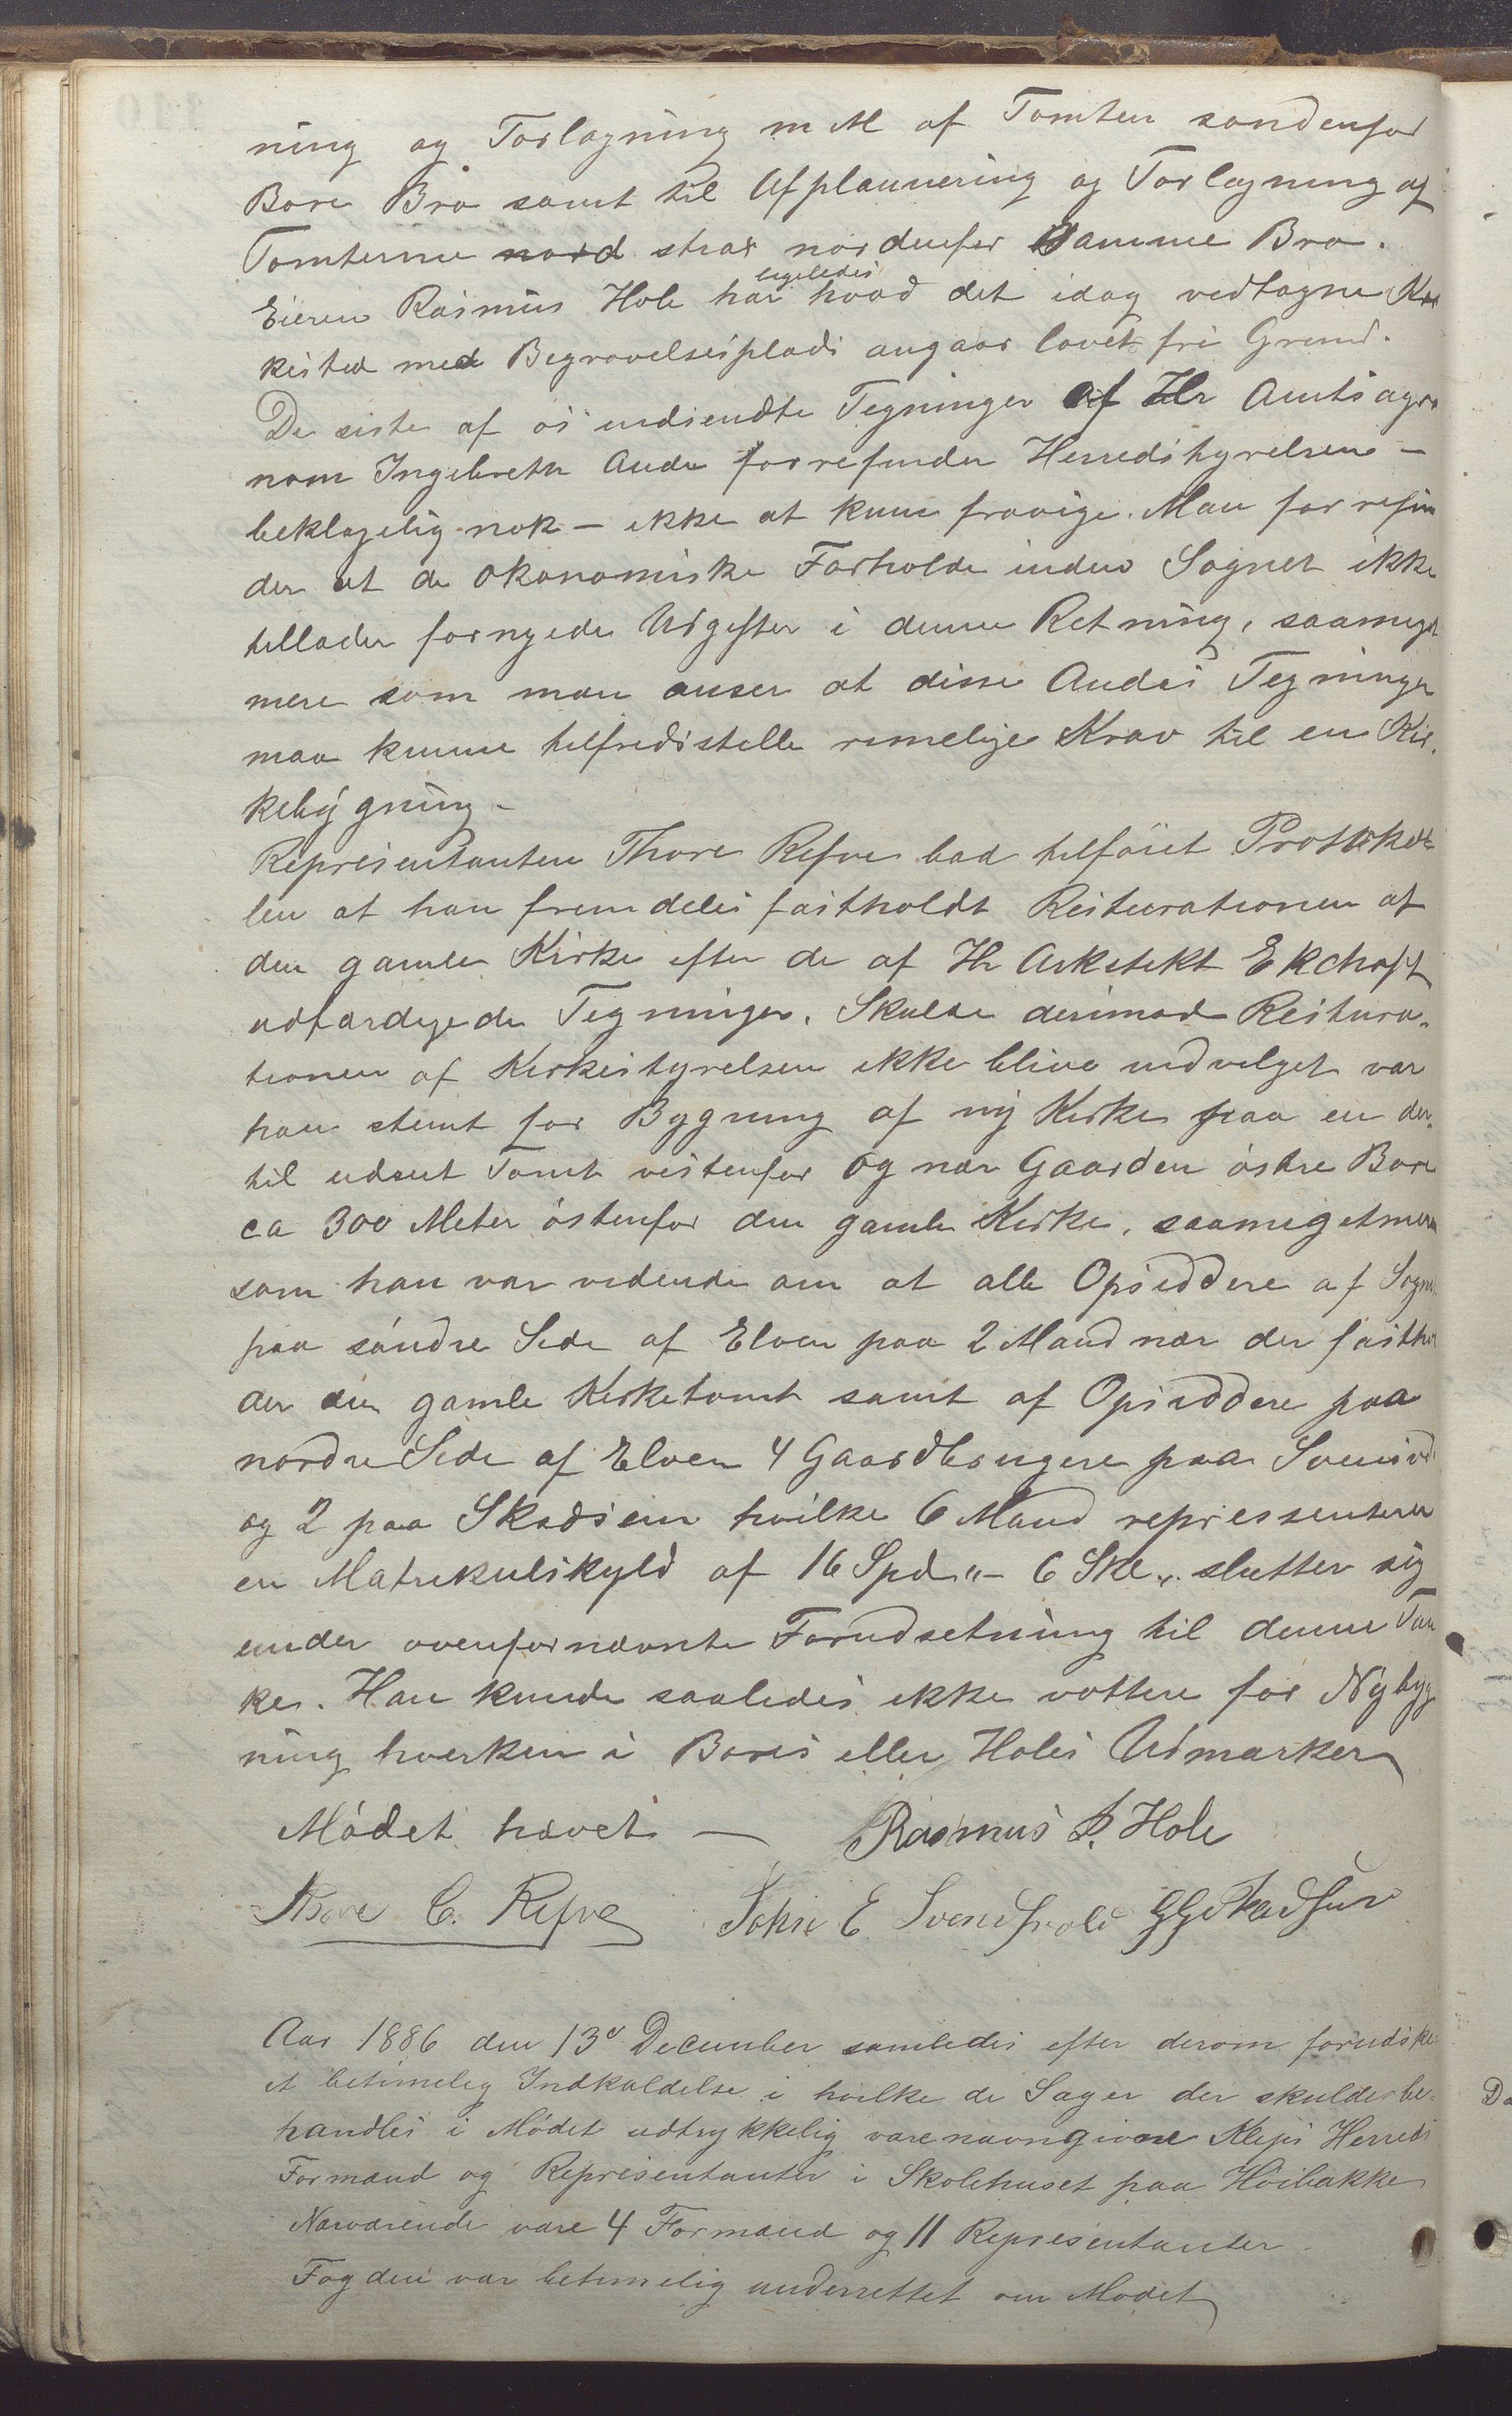 ning og Torlagning m M af Tomten søndenfor
Bore Bro samt til Afplanering og Torlagning af
Tomterne nord strax nordenfor samme Bro.
ligeledes
Eieren Rasmus Hole har hvad det idag vedtagne Kir
kested med Begravelsesplads angaar lovet fri Grund.
De siste af os indsendte Tegninger af Hr Amtsagro
nom Ingebreth Aude forrefinder Herredstyrelsen -
beklagelig nok - ikke at kunne fravige. Man forrefin
der at de økonomiske Forholde inden Sognet ikke
tillader fornyede Udgifter i denne Retning, saameget
mere som man anser at disse Audes Tegninger
maa kunne tilfredsstille rimelige Krav til en Kir.
kebygning -
Representanten Thore Refve bad tilføiet Protokol
len at han fremdeles fastholdt Resturationen af
den gamle Kirke efter de af Hr Arkitekt Ekchoff
udfærdigede Tegninger. Skulde derimod Restura.
tionen af Kirkestyrelsen ikke blive indvilget var
han stemt for Bygning af ny Kirke paa en der.
til udseet Tomt vestenfor og nær Gaarden østre Bore
ca 300 Meter østenfor den gamle Kirke, saamegetmere
som han var vidende om at alle Opsiddere af Sogne
paa søndre Side af Elven paa 2 Mand nær der fasthol
der den gamle Kirketomt samt af Opsiddere paa
nordre Side af Elven 4 Gaardbrugere paa Svensvol
og 2 paa Skadsem hvilke 6 Mand repressenterer
en Matrikulskyld af 16 Spd "- 6 Skl ". slutter sig
under ovenfornævnte Forudsetning til denne Tan
ke. Han kunde saaledes ikke vottere for Nybyg
ning hverken i Bores eller Holes Udmarker
Mødet hævet - Rasmus P. Hole
Thore C. Refve Tohre E Svendsvold G G Skadsem
Aar 1886 den 13de December samledes efter derom forudske
et betimelig Indkaldelse i hvilke de Sager der skulde be-
handles i Mødet udtrykkelig vare navngivne Kleps Herreds
Formænd og Representanter i Skolehuset paa Høibakke
Nærværende vare 4 Formænd og 11 Representanter
Fogden var betimelig underrettet om Mødet